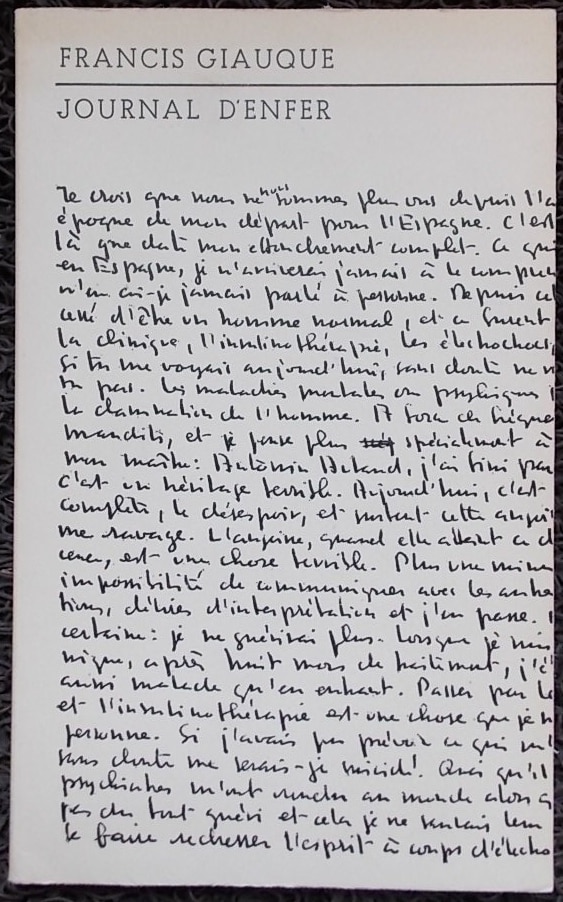 FRANCIS GIAUQUE
JOURNAL D'ENFER
Je crois que nous ne nous sommes plus vus depuis l'
époque de mon départ pour l'Espagne. C'est
là que date mon effondrement complet. Ce qui
en Espagne, je n'arriverai jamais à le
n'en ai-je jamais parlé à personne. Depuis
cessé d'être un homme normal, et ce furent
la clinique, l'insulinothérapie, les électrochocs,
Si tu me voyais aujourd'hui, sans doute ne
pas. Les maladies mentales ou psychiques
la damnation de l'homme. A force de
maudits, et je pense plus spécialement à
mon maître: Antonin Artaud, j'ai fini par
c'est un héritage terrible. Aujourd'hui, c'est
complète, le désespoir, et surtout cette
me ravage. L'angoisse, quand elle atteint ce
est une chose terrible. Plus une
impossibilité de communiquer avec les
délires d'interprétation et j'en passe.
certaine: je ne guérirai plus. Lorsque je
après huit mois de traitement, j'
aussi malade qu'en entrant. Passer par
et l'insulinothérapie est une chose que je
personne. Si j'avais pu prévoir ce qui
sans doute me serais-je suicidé. Quoi qu'il
psychiatres m'ont rendu au monde alors
pas du tout guéri et cela je ne
se faire redresser l'esprit à coups